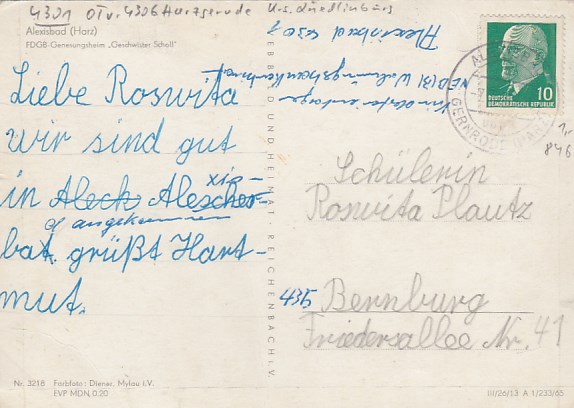 4301 OTv. 4306 Harzgerode Kr. Quedlinburg
Alexisbad (Harz)
FDGB-Genesungsheim „Geschwister Scholl"
Liebe Roswita
wir sind gut
in Alech Alescher-
xis-
d angekommen
bat. grüßt Hart-
mut.
Alexisbad 4301
BILD UND HEIMAT REICHENBACH I.V.
DEUTSCHE
DEMOKRATISCHE REPUBLIK
10
GERNRODE (HARZ)
1,-
846
Schülerin
Roswita Plautz
435 Bernburg
Friedersallee Nr. 41
Nr. 3218 Farbfoto: Diener, Mylau i.V.
EVP MDN 0.20
III/26/13 A 1/233/65